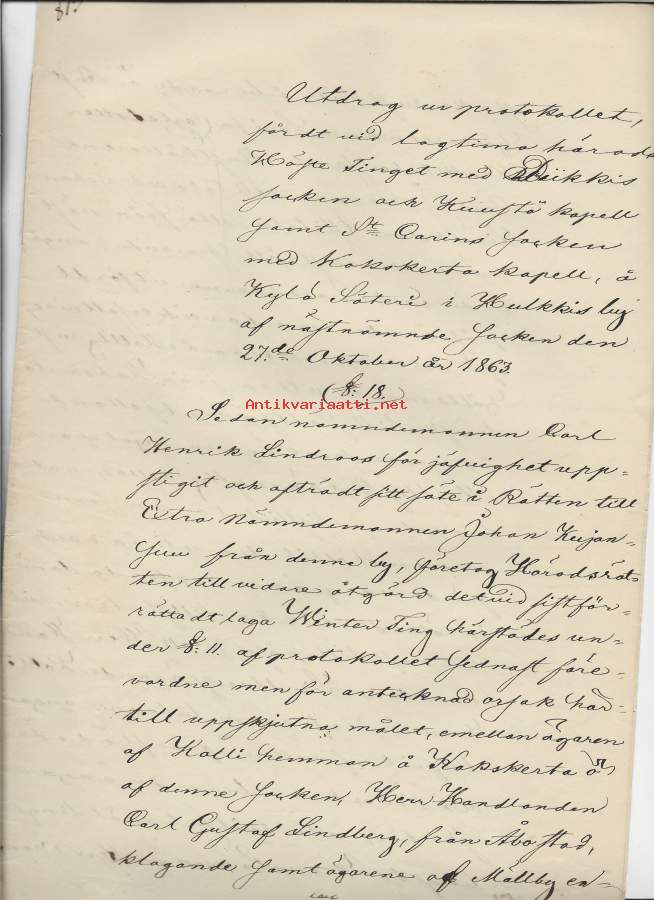 813
Utdrag ur protokollet,
fördt vid lagtima härads
Höste Tinget med Piikkis
socken och Kuustö kapell
samt St Carins socken
med Kakskerta kapell, å
Kylä Säteri i Hulkkis by
af nästnämnde socken den
27.de Oktober år 1863.
(§: 18.)
Antikvariaatti.net
Sedan nämndemannen Carl
Henrik Lindroos för jäfvighet upp-
stigit och afträdt sitt säte i Rätten till
Extra Nämndemannen Johan Kujan-
suu från denne by, företog Häradsrät-
ten till vidare åtgärd det vid sistför-
rättadt laga Winter Ting härstädes un-
der §: 11. af protokollet sednast före-
vordne men för antecknad orsak här-
till uppskjutna målet, emellan ägaren
af Kalli hemman å Kakskerta ö
af denne socken, Herr Handlanden
Carl Gustaf Lindberg, från Åbo stad,
klagande samt ägarene af Mällby en-